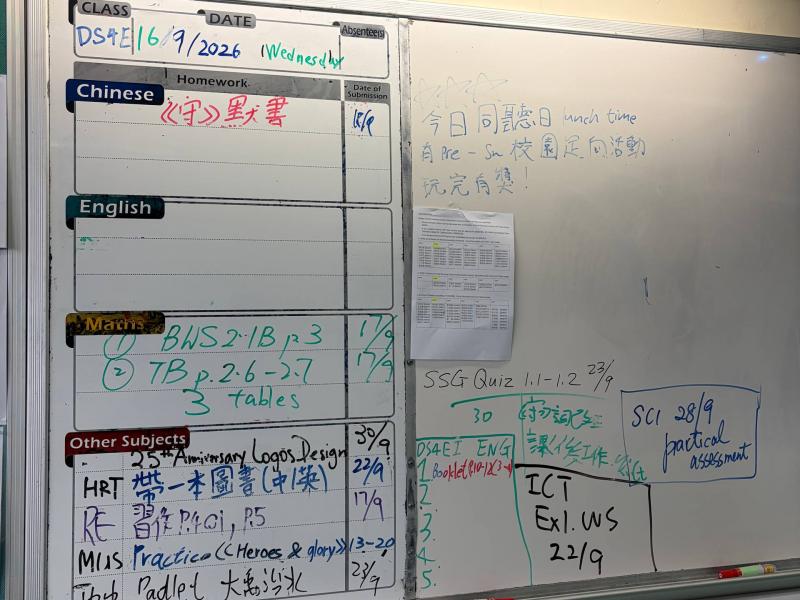 CLASS DATE Absentee(s)
DS4E 16/9/2026 Wednesday
Homework Date of Submission
Chinese
《守》默書 18/9
English
Maths
① BWS 2.1B p.3 17/9
② TB p.2.6-2.7 17/9
3 tables
Other Subjects
25th Anniversary Logos Design 30/9
HRT 帶一本圖書(中/英) 22/9
RE 習作 P.4 Q1, P.5 17/9
MUS Practice 《Heroes & glory》 13-20
Padlet 23/9
今日同聽日 lunch time
有 Pre-S1 校園定向活動
玩完有獎！
SSG Quiz 1.1-1.2 23/9
30
課後工作
DS4E1 ENG
1 Booklet
2
3
4
5.
ICT
Ex1. WS
22/9
SCI 28/9
practical
assessment